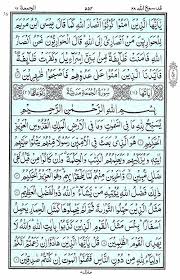 قد سمع الله ٢٨ ٥٥٣ الجمعة ٦٢
يٰٓاَيُّهَا الَّذِيْنَ اٰمَنُوْا كُوْنُوْٓا اَنْصَارَ اللّٰهِ كَمَا قَالَ عِيْسَى ابْنُ
مَرْيَمَ لِلْحَوَارِيّٖنَ مَنْ اَنْصَارِيْٓ اِلَى اللّٰهِ قَالَ الْحَوَارِيُّوْنَ نَحْنُ
اَنْصَارُ اللّٰهِ فَاٰمَنَتْ طَّآئِفَةٌ مِّنْۢ بَنِيْٓ اِسْرَآءِيْلَ وَكَفَرَتْ طَّآئِفَةٌ
فَاَيَّدْنَا الَّذِيْنَ اٰمَنُوْا عَلٰى عَدُوِّهِمْ فَاَصْبَحُوْا ظٰهِرِيْنَ
سُوْرَةُ الْجُمُعَةِ مَدَنِيَّةٌ
بِسْمِ اللّٰهِ الرَّحْمٰنِ الرَّحِيْمِ
يُسَبِّحُ لِلّٰهِ مَا فِي السَّمٰوٰتِ وَمَا فِي الْاَرْضِ الْمَلِكِ الْقُدُّوْسِ الْعَزِيْزِ
الْحَكِيْمِ هُوَ الَّذِيْ بَعَثَ فِي الْاُمِّيّٖنَ رَسُوْلًا مِّنْهُمْ يَتْلُوْا عَلَيْهِمْ
اٰيٰتِهٖ وَيُزَكِّيْهِمْ وَيُعَلِّمُهُمُ الْكِتٰبَ وَالْحِكْمَةَ وَاِنْ كَانُوْا مِنْ قَبْلُ لَفِيْ
ضَلٰلٍ مُّبِيْنٍ وَّاٰخَرِيْنَ مِنْهُمْ لَمَّا يَلْحَقُوْا بِهِمْ وَهُوَ الْعَزِيْزُ الْحَكِيْمُ
ذٰلِكَ فَضْلُ اللّٰهِ يُؤْتِيْهِ مَنْ يَّشَآءُ وَاللّٰهُ ذُو الْفَضْلِ الْعَظِيْمِ
مَثَلُ الَّذِيْنَ حُمِّلُوا التَّوْرٰىةَ ثُمَّ لَمْ يَحْمِلُوْهَا كَمَثَلِ الْحِمَارِ يَحْمِلُ
اَسْفَارًا بِئْسَ مَثَلُ الْقَوْمِ الَّذِيْنَ كَذَّبُوْا بِاٰيٰتِ اللّٰهِ وَاللّٰهُ لَا يَهْدِي
الْقَوْمَ الظّٰلِمِيْنَ قُلْ يٰٓاَيُّهَا الَّذِيْنَ هَادُوْٓا اِنْ زَعَمْتُمْ اَنَّكُمْ
اَوْلِيَآءُ لِلّٰهِ مِنْ دُوْنِ النَّاسِ فَتَمَنَّوُا الْمَوْتَ اِنْ كُنْتُمْ صٰدِقِيْنَ